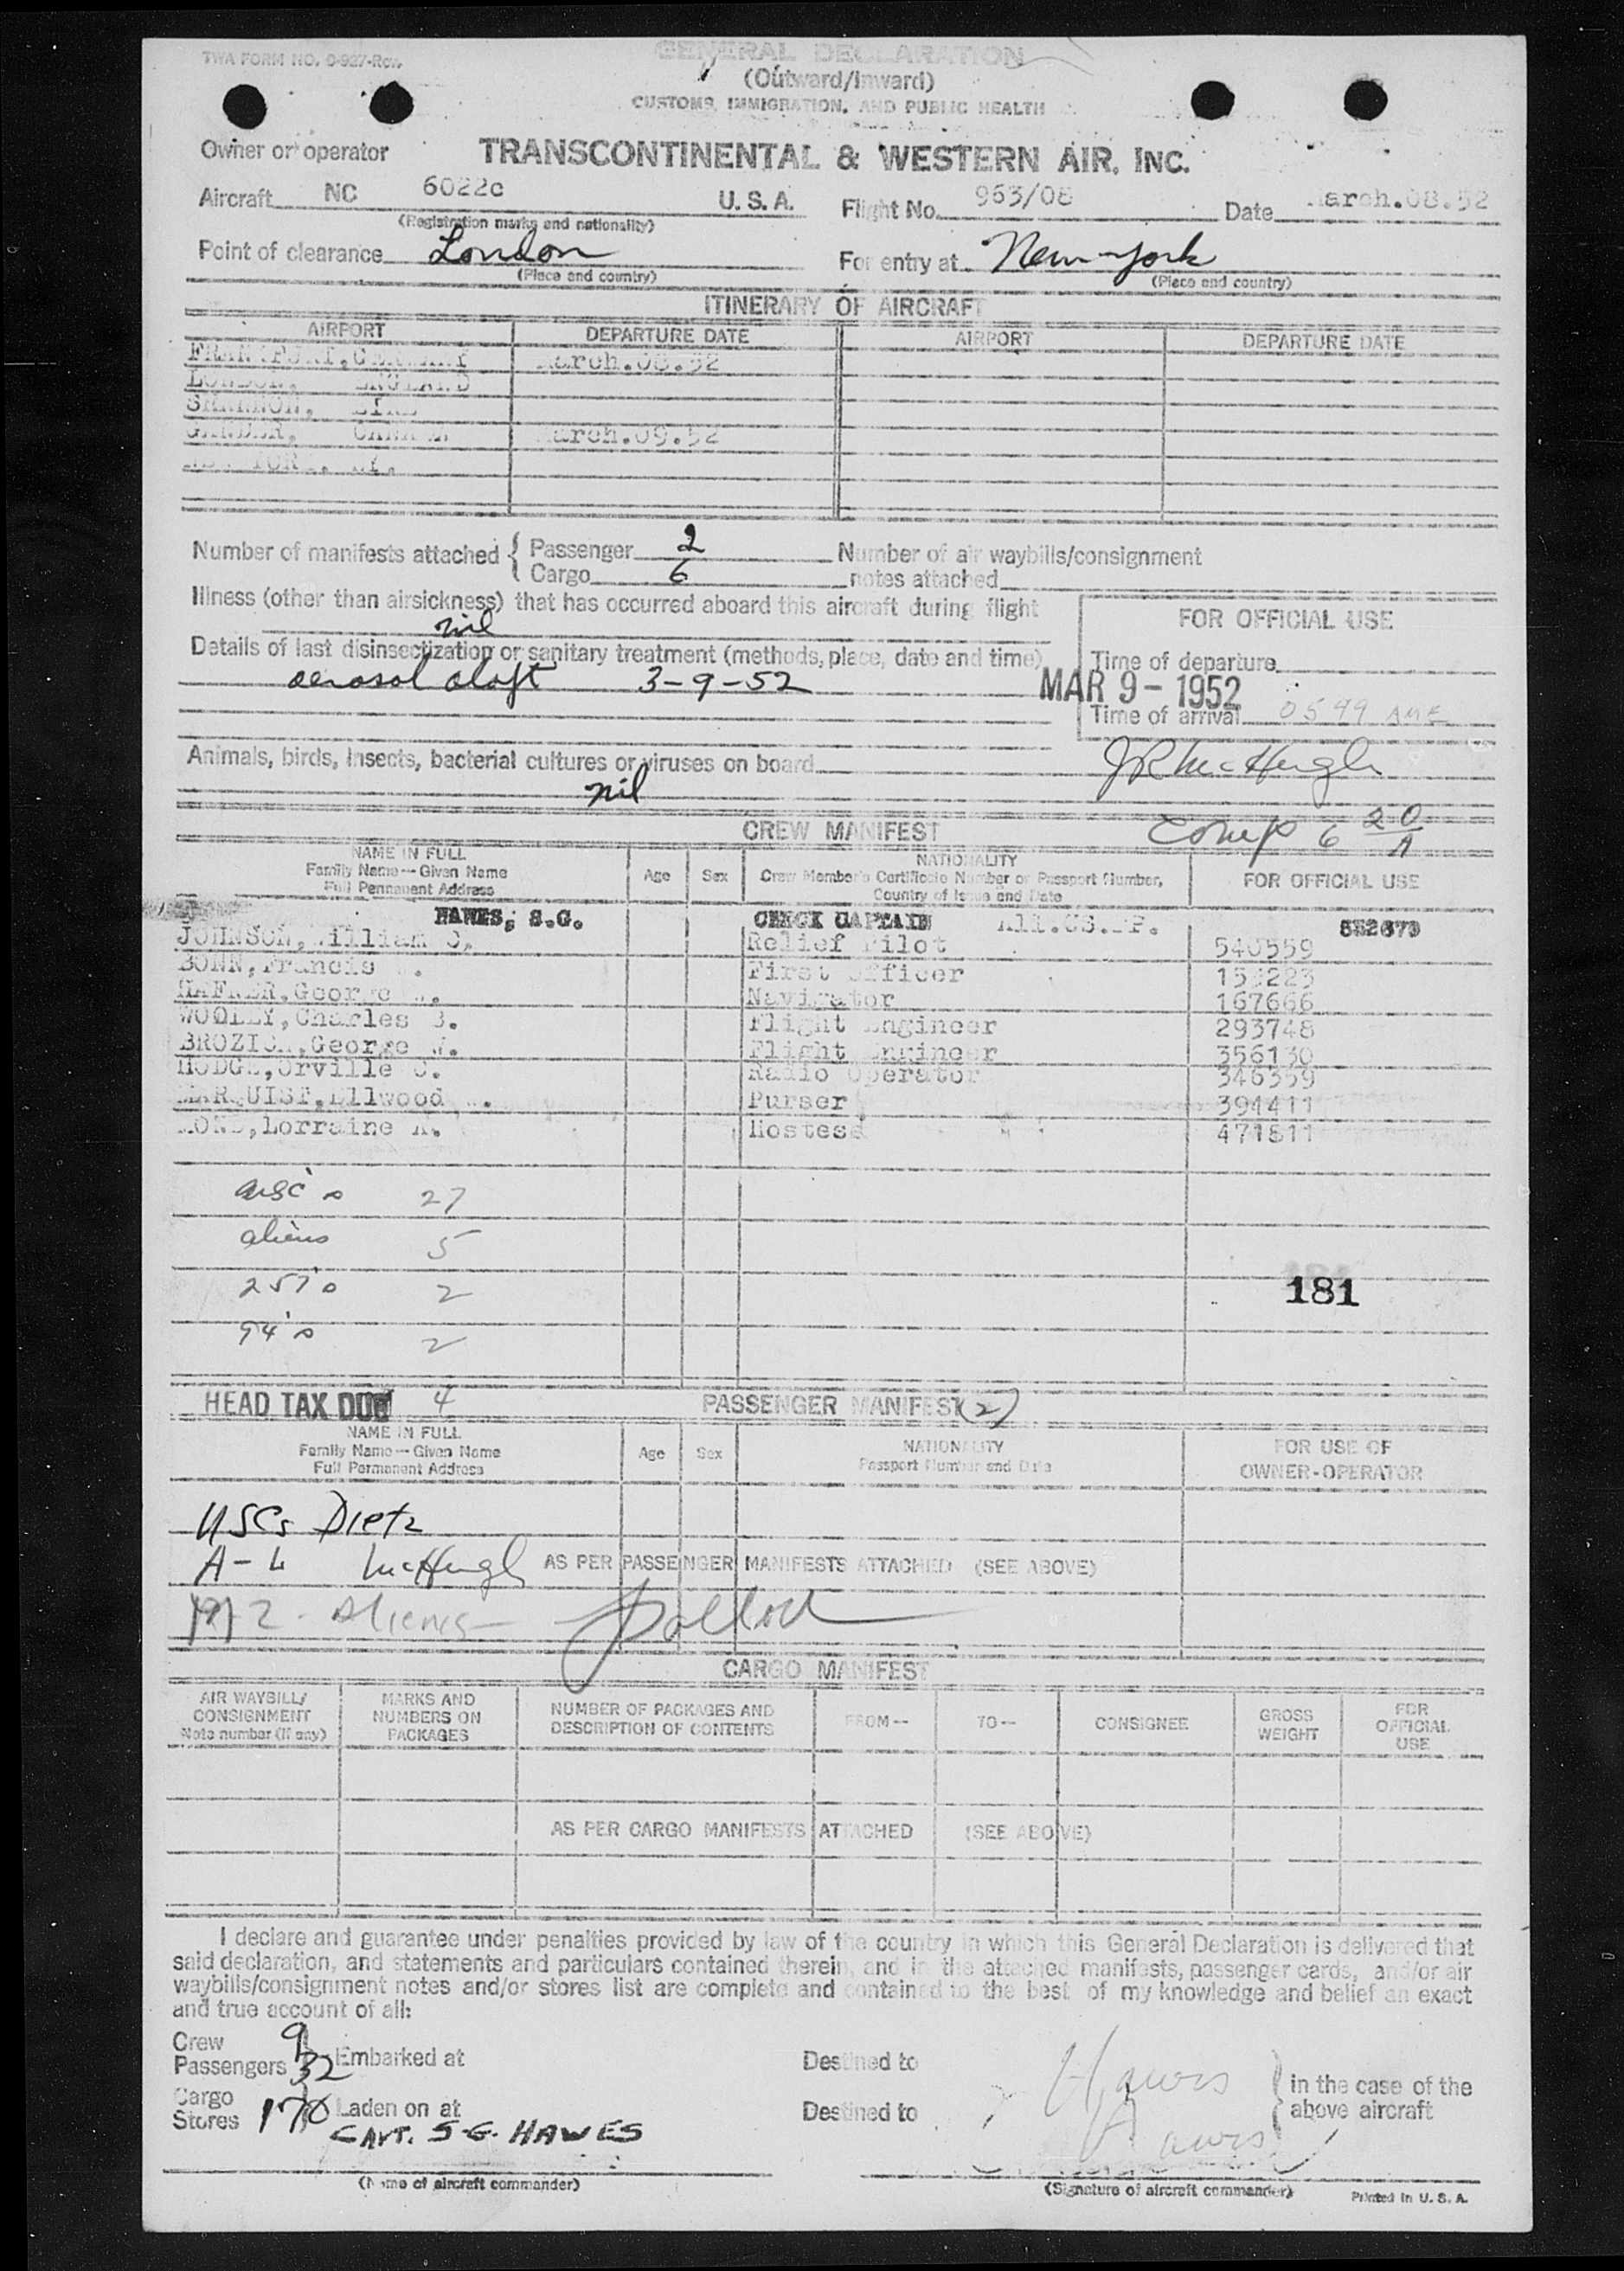 TWA FORM NO. O-927-Rev.
GENERAL DECLARATION
(Outward/Inward)
CUSTOMS, IMMIGRATION, AND PUBLIC HEALTH
Owner or operator TRANSCONTINENTAL & WESTERN AIR, INC.
Aircraft NC 6022c U. S. A. Flight No. 963/08 Date arch.08.52
(Registration marks and nationality)
Point of clearance London For entry at New-York
(Place and country) (Place and country)
ITINERARY OF AIRCRAFT
AIRPORT DEPARTURE DATE AIRPORT DEPARTURE DATE
FRANKFURT, GERMANY arch.08.52
LONDON, ENGLAND
SHANNON, EIRE
GANDER, arch.09.52
Number of manifests attached { Passenger 2 Number of air waybills/consignment
Cargo 6 notes attached
Illness (other than airsickness) that has occurred aboard this aircraft during flight
nil
FOR OFFICIAL USE
Details of last disinsectization or sanitary treatment (methods, place, date and time)
aerosol aloft 3-9-52
Time of departure
MAR 9 - 1952
Time of arrival
Animals, birds, insects, bacterial cultures or viruses on board
nil
JR McHugh
CREW MANIFEST
Comp 6 20/A
NAME IN FULL
Family Name—Given Name
Full Permanent Address
Age Sex
NATIONALITY
Crew Member's Certificate Number or Passport Number,
Country of Issue and Date
FOR OFFICIAL USE
HAWES, S.G. CHECK CAPTAIN All.US.PP.
JOHNSON, William C. Relief Pilot 540559
BONN, Francis First Officer
HAFNER, George Navigator 167666
WOOLEY, Charles B. Flight Engineer 293748
George W. Flight Engineer 356130
HODGE, Orville C. Radio Operator 346359
Ellwood Purser 394411
Lorraine Hostess 471811
usc's 27
aliens 5
257's 2
94's 2
181
HEAD TAX DUE 4
PASSENGER MANIFEST (2)
NAME IN FULL
Family Name—Given Name
Full Permanent Address
Age Sex
NATIONALITY
Passport Number and Date
FOR USE OF
OWNER-OPERATOR
USCs Dietz
A-L McHugh AS PER PASSENGER MANIFESTS ATTACHED (SEE ABOVE)
2 - Aliens
CARGO MANIFEST
AIR WAYBILL/
CONSIGNMENT
Note number (if any)
MARKS AND
NUMBERS ON
PACKAGES
NUMBER OF PACKAGES AND
DESCRIPTION OF CONTENTS
FROM—
TO—
CONSIGNEE
GROSS
WEIGHT
FOR
OFFICIAL
USE
AS PER CARGO MANIFESTS ATTACHED (SEE ABOVE)
I declare and guarantee under penalties provided by law of the country in which this General Declaration is delivered that
said declaration, and statements and particulars contained therein, and in the attached manifests, passenger cards, and/or air
waybills/consignment notes and/or stores list are complete and contained to the best of my knowledge and belief an exact
and true account of all:
Crew 9
Passengers 32 Embarked at Destined to
Cargo
Stores 170 Laden on at Destined to
in the case of the
above aircraft
Hawes
Hawes
CAPT. S-G. HAWES
(Name of aircraft commander) (Signature of aircraft commander) Printed in U. S. A.